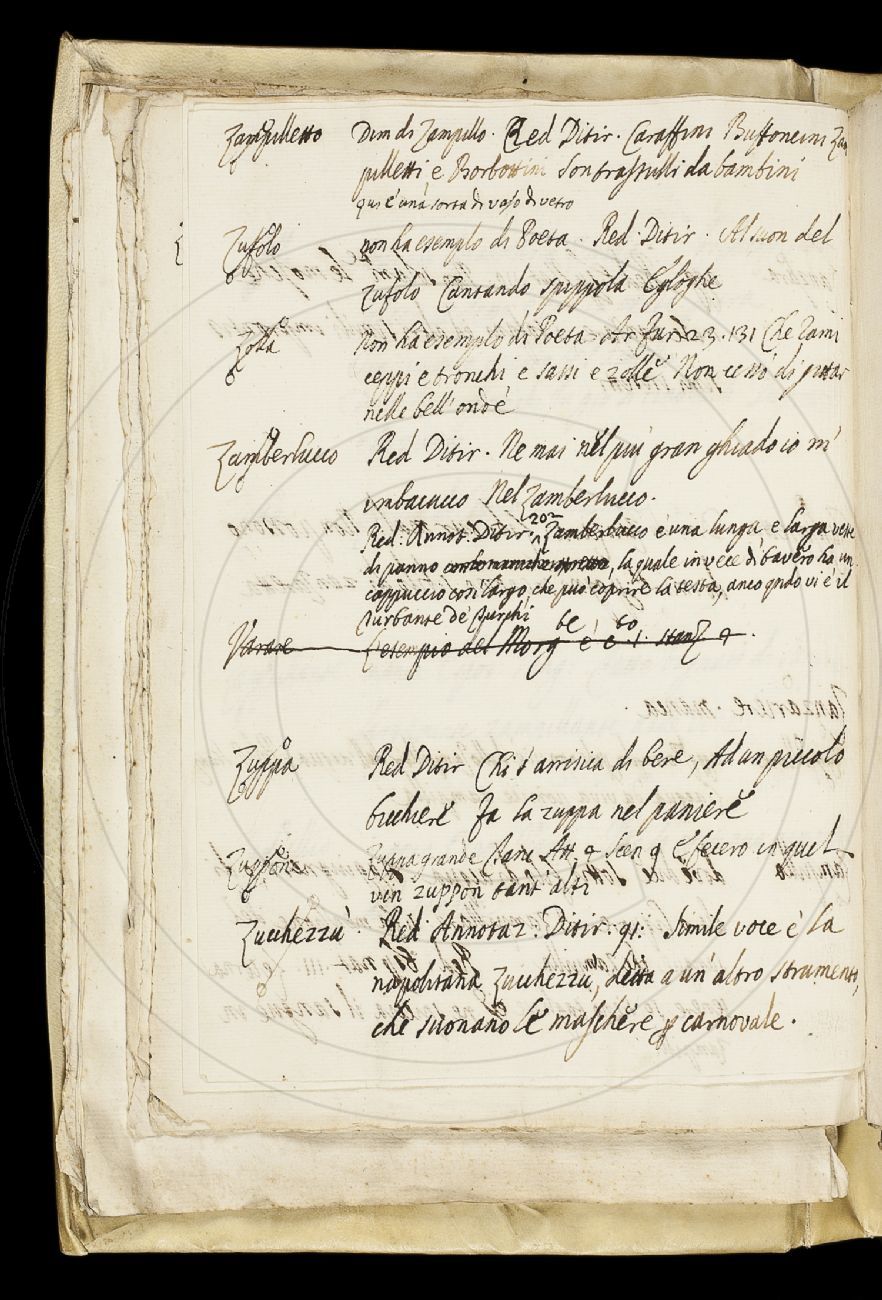 Zampilletto Dim di Zampillo. Red Ditir. Caraffini Buffoncini Zam
pilletti e Borbottini Son trastulli da bambini
qui è una sorta di vaso di vetro
Zufolo non ha esemplo di Poeta. Red. Ditir. Al suon del
zufolo Cantando spippola Egloghe
Zolla Non ha esemplo di Poeta Ar fur 23. 131 Che rami
ceppi e tronchi e sassi e zolle Non cessò di gittar
nelle bell'onde
Zamberlucco Red Ditir. Ne mai nel più gran ghiado io m'
imbacucco Nel Zamberlucco.
Red. Annot. Ditir. 202 Zamberlucco è una lunga e larga veste
di panno con le maniche strette, la quale in vece di bavero ha un
cappuccio così largo, che può coprire la testa, anco qndo vi è il
Turbante de Turchi
be to
Varare L'esempio del Morg è c. 1. stanz 9.
Zuppa Red Ditir Chi s'arrisica di bere, Ad un piccolo
bicchere Fa la zuppa nel paniere
Zuppone Zuppa grande Att. 9 Scen 9 E fecero in quel
vin zuppon tant'alti
Zucchezzù Red. Annotaz. Ditir. 91: Simile voce è la
napolitana Zucchezzù, detta a un'altro strumento,
che suonano le maschere p carnovale.